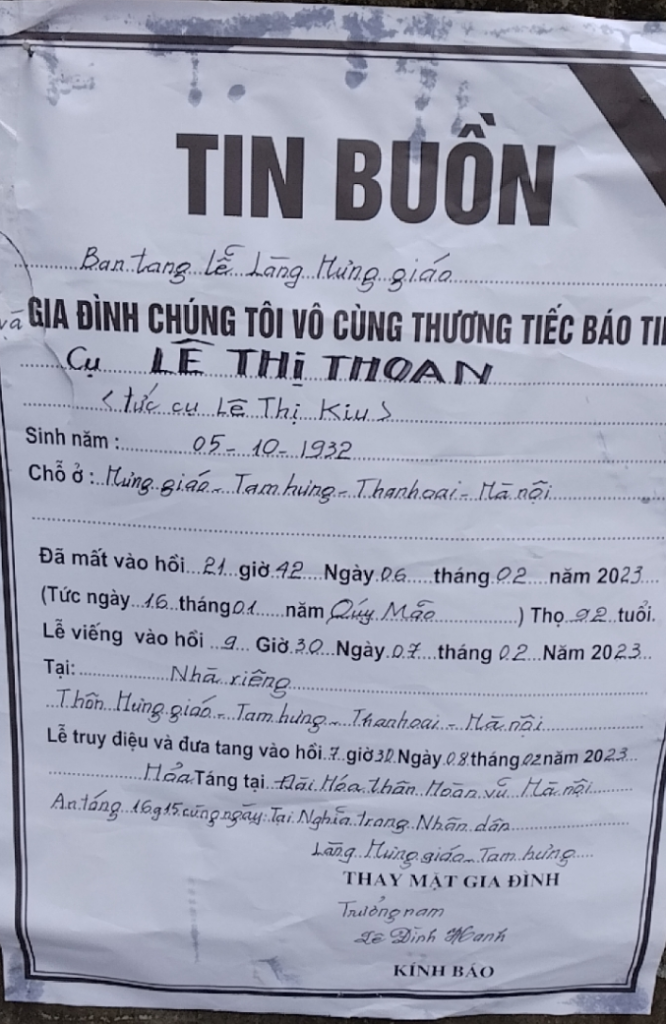 TIN BUỒN
Ban tang lễ Làng Hưng giáo
và GIA ĐÌNH CHÚNG TÔI VÔ CÙNG THƯƠNG TIẾC BÁO TI
Cụ LÊ THỊ THOAN
< tức cụ Lê Thị Kiu >
Sinh năm : 05 - 10 - 1932
Chỗ ở : Hưng giáo - Tam hưng - Thanh oai - Hà nội
Đã mất vào hồi 21 giờ 42 Ngày 06 tháng 02 năm 2023
(Tức ngày 16 tháng 01 năm Qúy Mão ) Thọ 92 tuổi.
Lễ viếng vào hồi 9 Giờ 30 Ngày 07 tháng 02 Năm 2023
Tại: Nhà riêng
Thôn Hưng giáo - Tam hưng - Thanh oai - Hà nội
Lễ truy điệu và đưa tang vào hồi 7 giờ 30 Ngày 08 tháng 02 năm 2023
Hỏa Táng tại Đài Hóa thân Hoàn vũ Hà nội
An táng 16g15 cùng ngày: Tại Nghĩa trang Nhân dân
Làng Hưng giáo - Tam hưng
THAY MẶT GIA ĐÌNH
Trưởng nam
Lê Đình Hanh
KÍNH BÁO